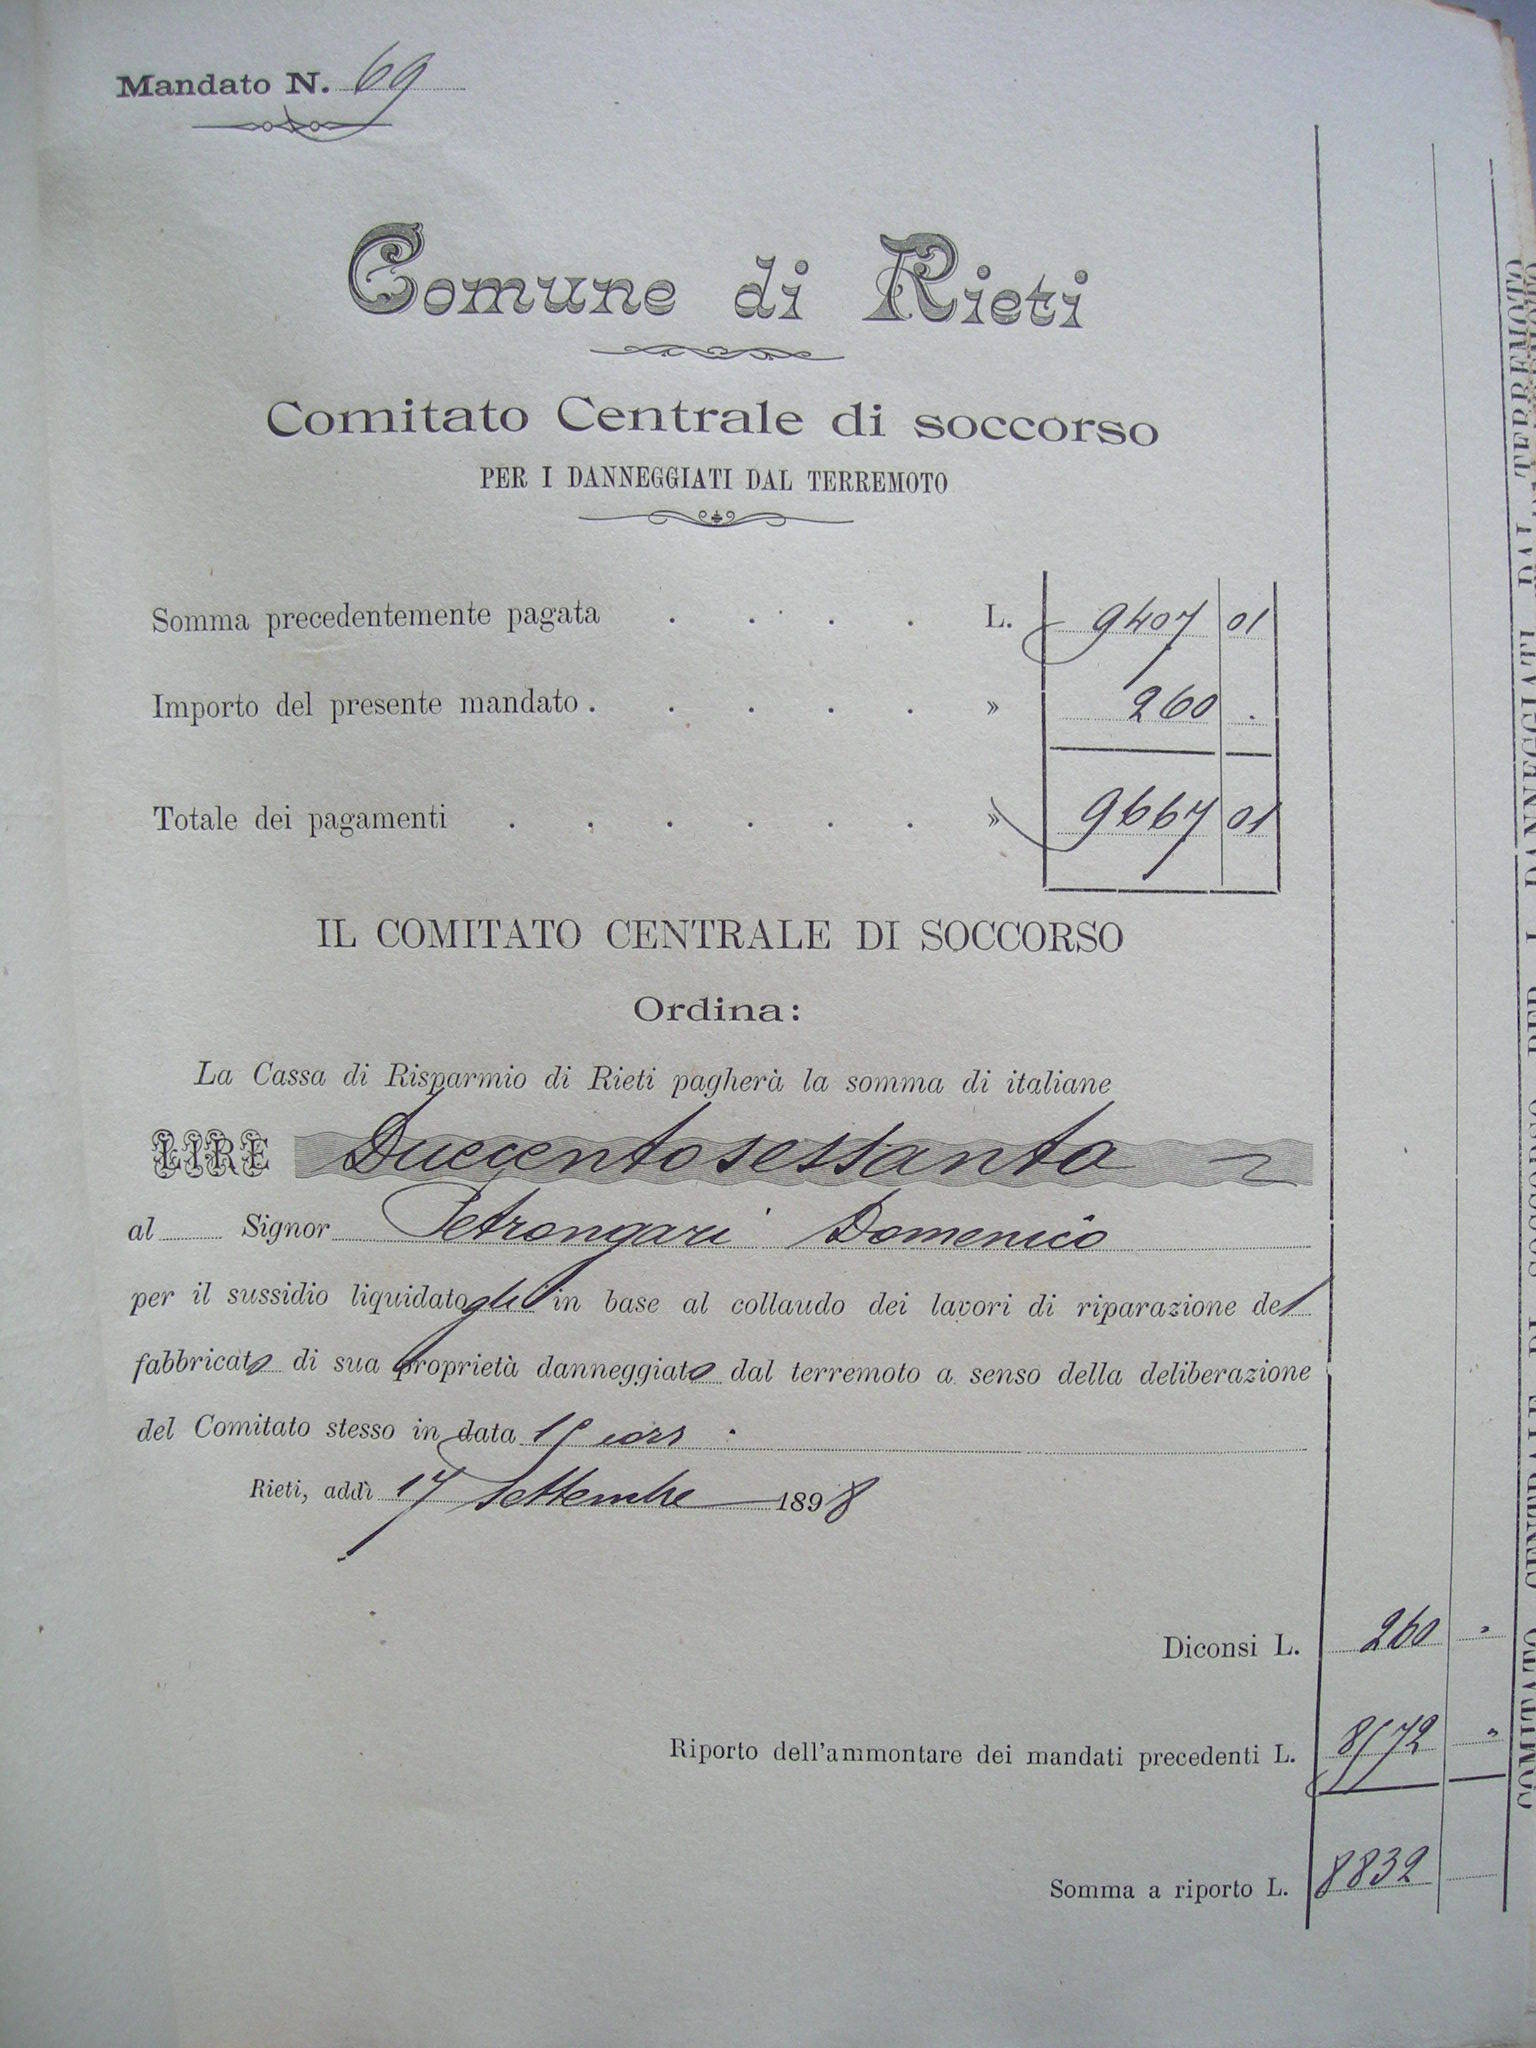 Mandato N. 69
Comune di Rieti
Comitato Centrale di soccorso
PER I DANNEGGIATI DAL TERREMOTO
Somma precedentemente pagata . . . . L. 9407 01
Importo del presente mandato . . . . . » 260 .
Totale dei pagamenti . . . . . . » 9667 01
IL COMITATO CENTRALE DI SOCCORSO
Ordina:
La Cassa di Risparmio di Rieti pagherà la somma di italiane
LIRE Duecentosessanta
al Signor Petrongari Domenico
per il sussidio liquidatogli in base al collaudo dei lavori di riparazione del
fabbricato di sua proprietà danneggiato dal terremoto a senso della deliberazione
del Comitato stesso in data 15 corr
Rieti, addì 17 Settembre 1898
Diconsi L. 260 "
Riporto dell'ammontare dei mandati precedenti L. 8572 "
Somma a riporto L. 8832
COMITATO CENTRALE DI SOCCORSO PER I DANNEGGIATI DAL TERREMOTO